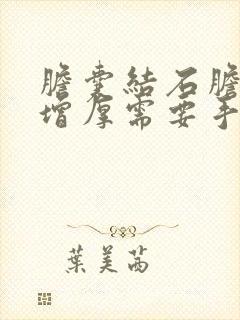 膽囊結石膽
增厚需要手
葉美茜